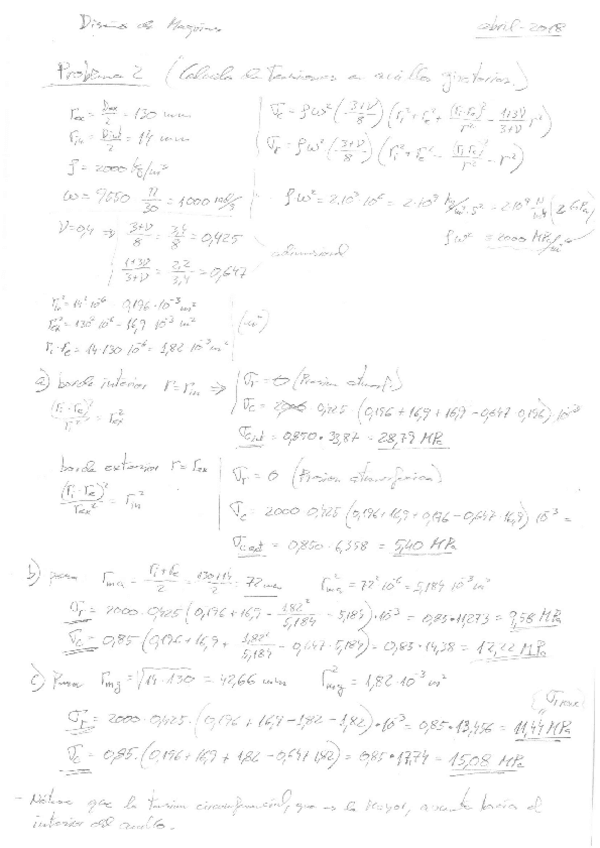 Diseño de Maquinas abril-2018
Problema 2 (Calculo de Tensiones en anillos giratorios)
r_ex = D_ex/2 = 130 mm
r_in = D_int/2 = 14 mm
ρ = 2000 kg/m³
ω = 9550 π/30 = 1000 rad/s
ν = 0,4 ⇒ (3+ν)/8 = 3,4/8 = 0,425
(1+3ν)/(3+ν) = 2,2/3,4 = 0,647
adimensional
σ_c = ρω² ((3+ν)/8) (r_i² + r_e² + (r_i·r_e)²/r² - (1+3ν)/(3+ν) r²)
σ_r = ρω² ((3+ν)/8) (r_i² + r_e² - (r_i·r_e)²/r² - r²)
ρω² = 2·10³·10⁶ = 2·10⁹ kg/m³·s² = 2·10⁹ N/m⁴ (2 GPa)
ρω² = 2000 MPa/m²
r_in² = 14² 10⁻⁶ = 0,196·10⁻³ m²
r_ex² = 130² 10⁻⁶ = 16,9 10⁻³ m²
r_i·r_e = 14·130 10⁻⁶ = 1,82 10⁻³ m²
(m²)
a) borde interior r = r_in ⇒ σ_r = 0 (Presion atmosf.)
(r_i·r_e)²/r_i² = r_ex² σ_c = 2000 0,425 · (0,196 + 16,9 + 16,9 - 0,647·0,196) 10⁻³
σ_c,int = 0,850 · 33,87 = 28,79 MPa
borde exterior r = r_ex σ_r = 0 (Presion atmosferica)
(r_i·r_e)²/r_ex² = r_in² σ_c = 2000 0,425 (0,196 + 16,9 + 0,196 - 0,647·16,9) 10⁻³ =
σ_c,ext = 0,850 · 6,358 = 5,40 MPa
b) para r_ma = (r_i + r_e)/2 = (130+14)/2 = 72 mm r_ma² = 72² 10⁻⁶ = 5,184 10⁻³ m²
σ_r = 2000·0,425 (0,196 + 16,9 - 1,82²/5,184 - 5,184)·10⁻³ = 0,85·11,273 = 9,58 MPa
σ_c = 0,85 (0,196 + 16,9 + 1,82²/5,184 - 0,647·5,184) = 0,85·14,38 = 12,22 MPa
c) Para r_mg = √(14·130) = 42,66 mm r_mg² = 1,82·10⁻³ m²
(σ_r max)
σ_r = 2000·0,425·(0,196 + 16,9 - 1,82 - 1,82)·10⁻³ = 0,85·13,456 = 11,44 MPa
σ_c = 0,85·(0,196 + 16,9 + 1,82 - 0,647·1,82) = 0,85·17,74 = 15,08 MPa
- Nótese que la tension circunferencial, que es la mayor, aumenta hacia el
interior del anillo.